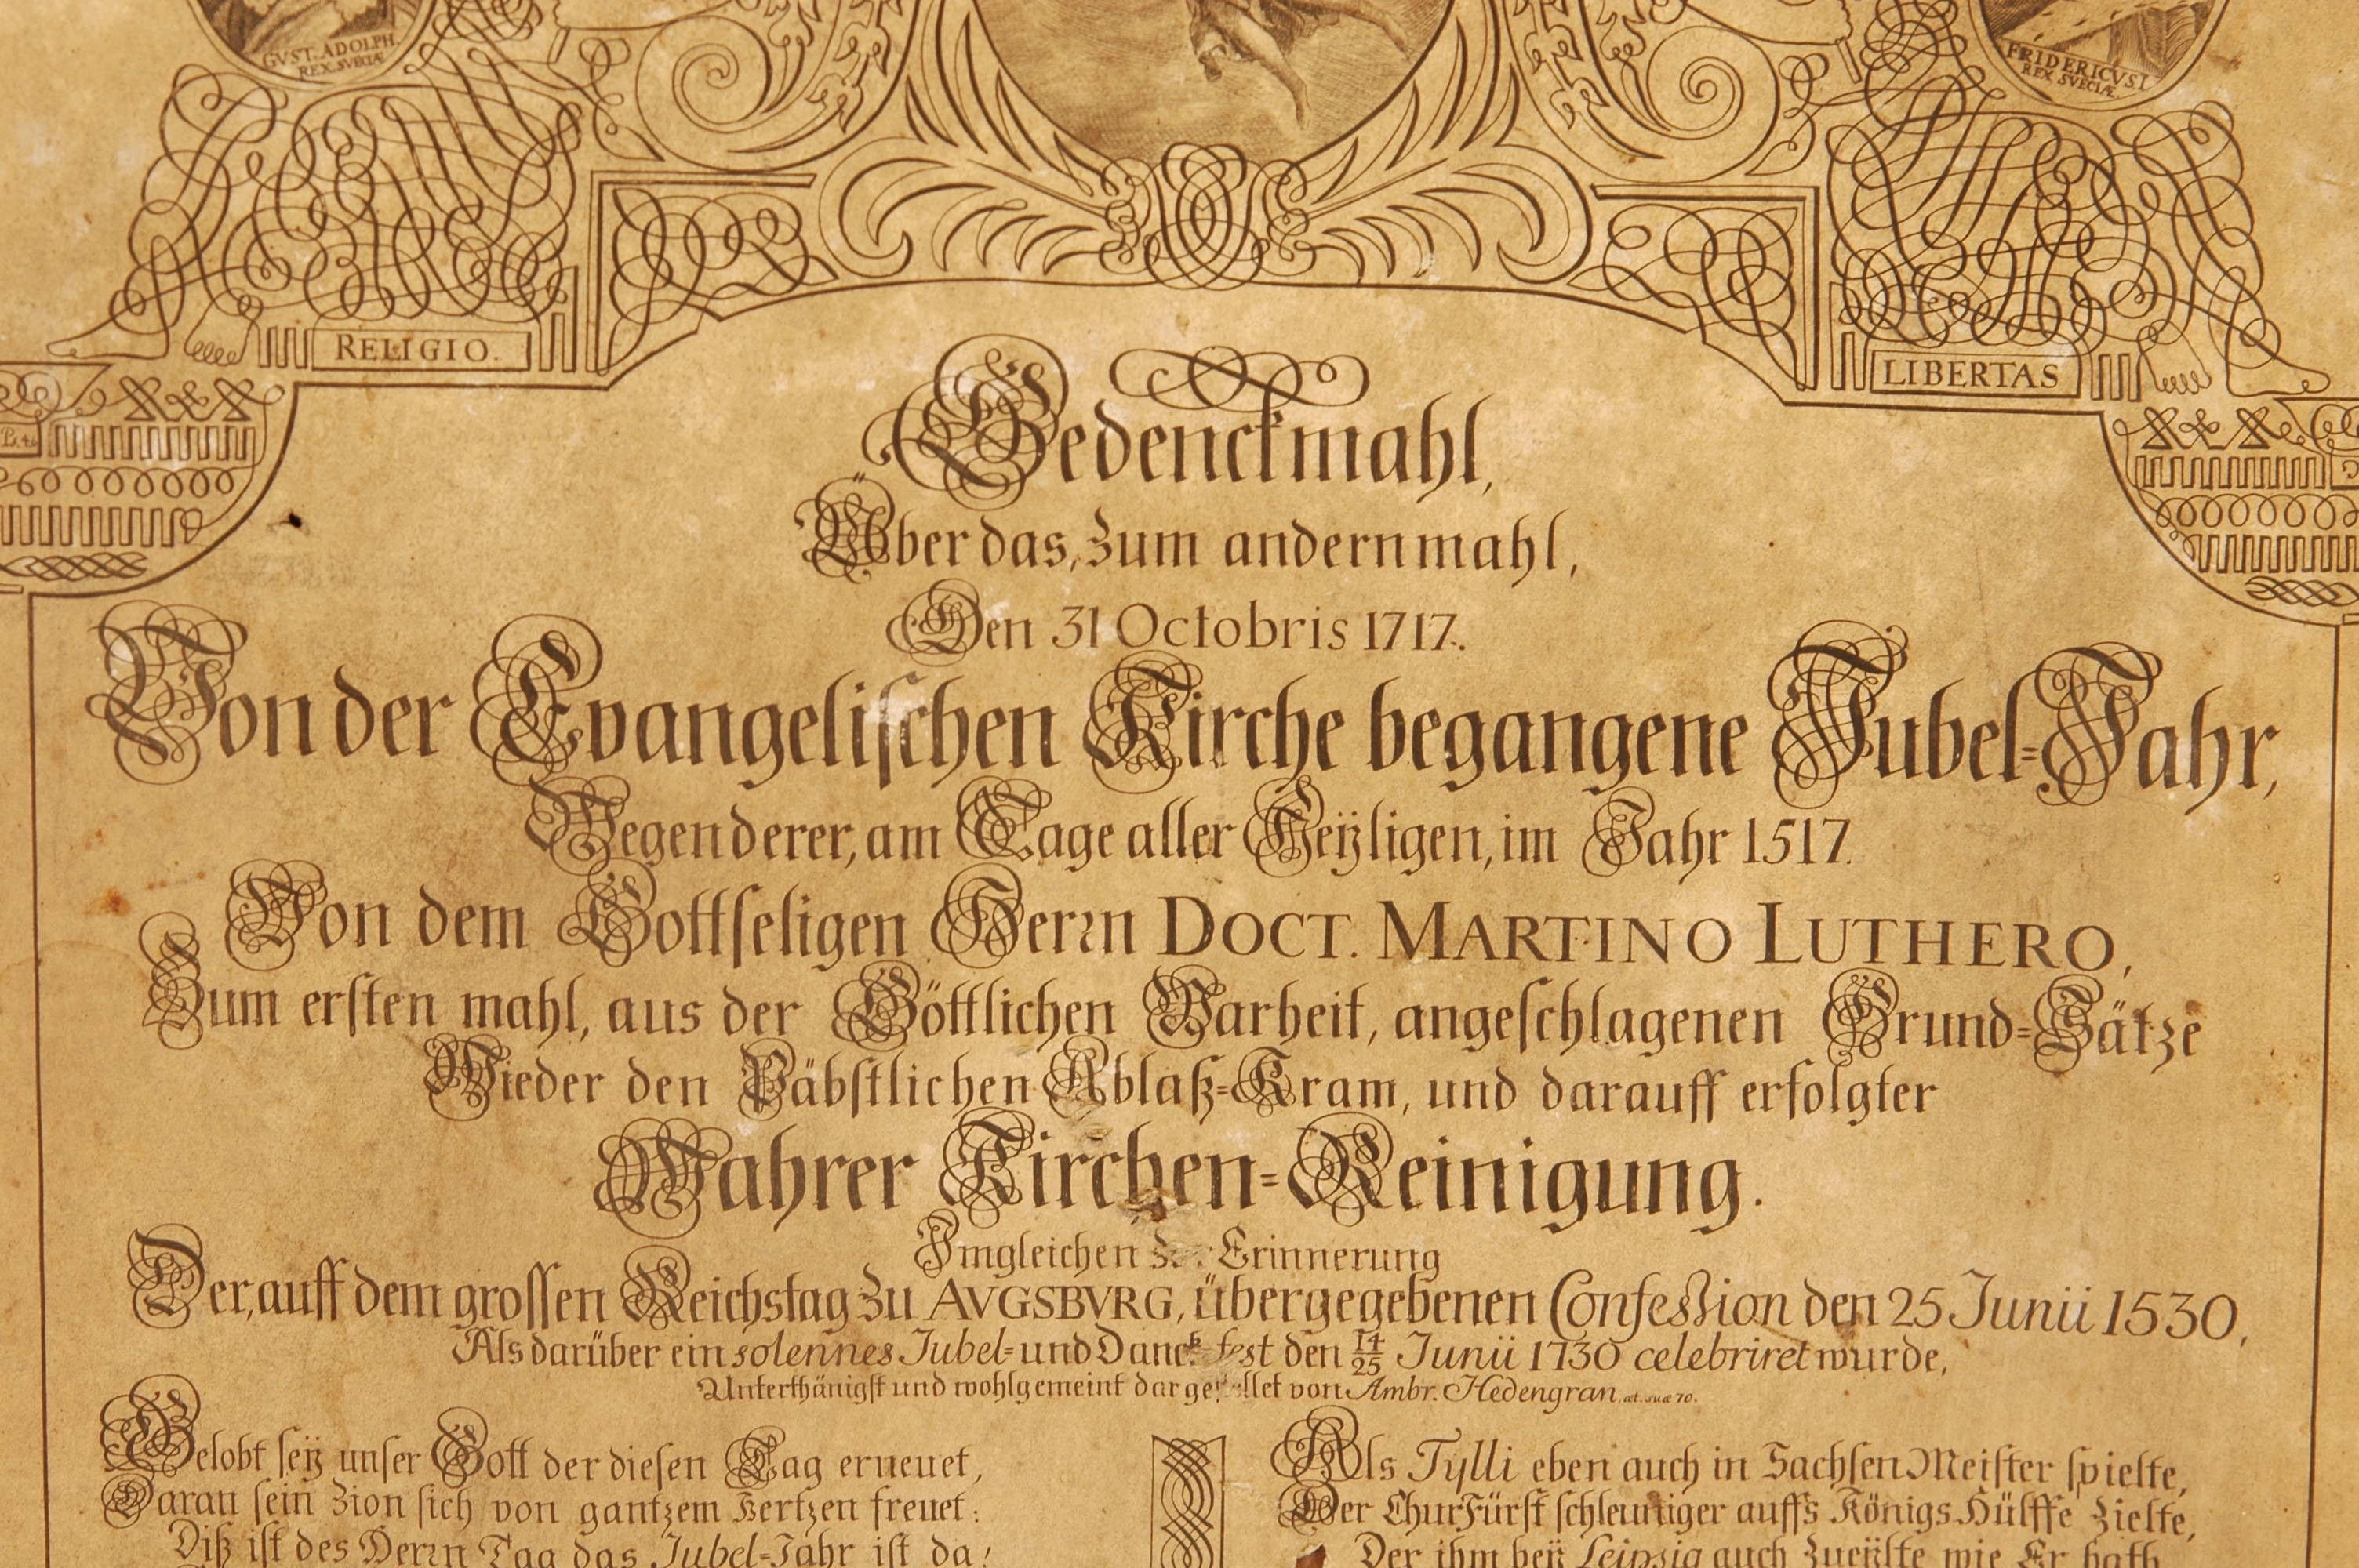 GVST. ADOLPH.
REX. SVECIÆ
FRIDERICVS. I.
REX SVECIÆ.
RELIGIO.
LIBERTAS
Gedenckmahl,
Über das, zum andernmahl,
Den 31 Octobris 1717.
Von der Evangeliſchen Kirche begangene Jubel=Jahr,
Wegen derer, am Tage aller Heÿligen, im Jahr 1517.
Von dem Gottſeligen Herrn DOCT. MARTINO LUTHERO,
Zum erſten mahl, aus der Göttlichen Warheit, angeſchlagenen Grund=Sätze
Wieder den Päbſtlichen Ablaß=Kram, und darauff erfolgter
Wahrer Kirchen=Reinigung.
Imgleichen Erinnerung
Der, auff dem groſſen Reichstag zu AVGSBVRG, übergegebenen Confeſsion den 25 Junii 1530,
Als darüber ein solennes Jubel= und Danck=fest den 14/25 Junii 1730 celebriret wurde,
Unterthänigſt und wohlgemeint dargeſtellet von Ambr. Hedengran, æt. suæ 70.
Gelobt ſeÿ unſer Gott der dieſen Tag erneuet,
Daran ſein Zion ſich von gantzem Hertzen freuet:
Diß iſt des Herrn Tag das Jubel=Jahr iſt da!
Als Tÿlli eben auch in Sachſen Meiſter ſpielte,
Der ChurFürſt ſchleuniger auffs Königs Hülffe zielte,
Der ihm beÿ Leipzig auch zueÿlte wie Er bath